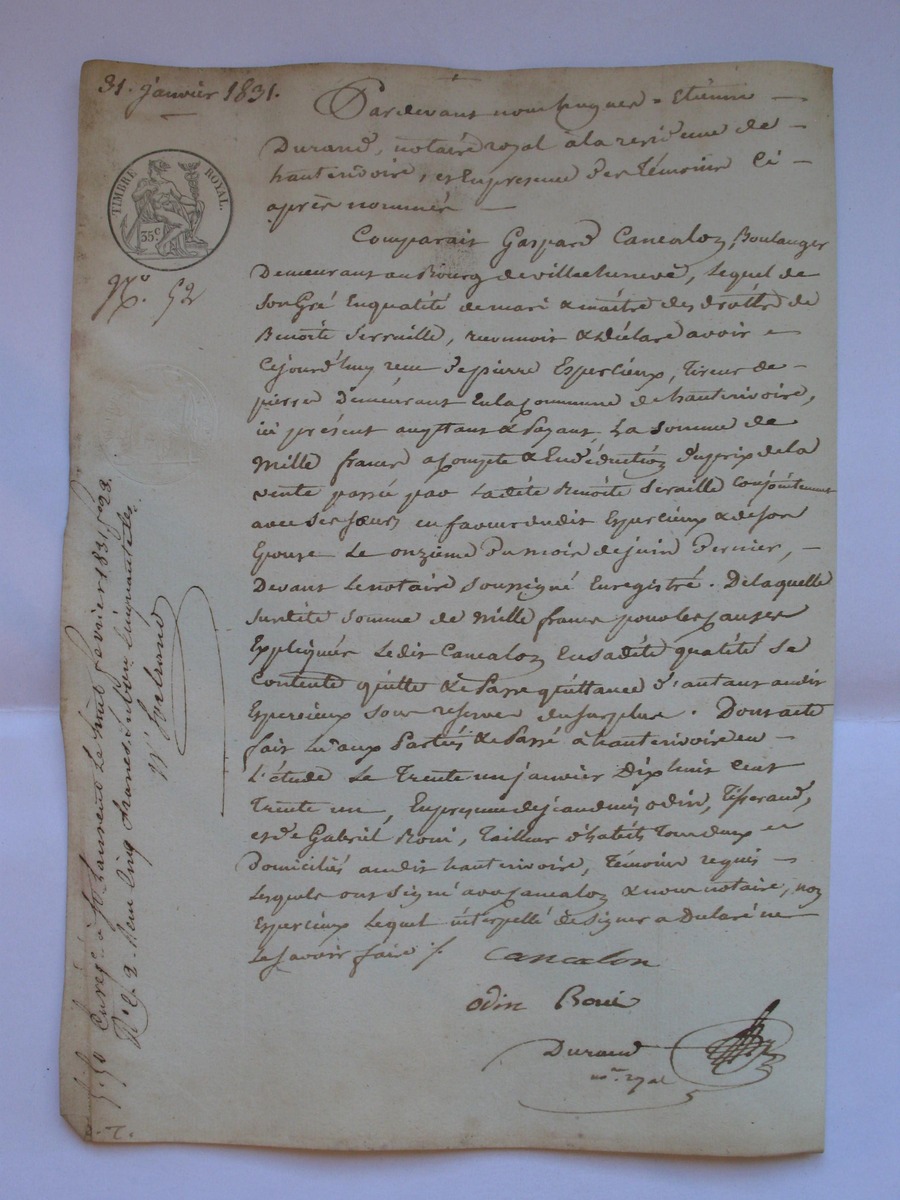 31. janvier 1831.
Pardevant nous hugues = Etienne
Durand, notaire royal à la residence de
hauterivoire, et En presence Des Témoins Ci
après nommés
Comparait Gaspard Cancalon, Boulanger
Demeurant au Bourg de villechenevé, Lequel de
Son Gré En qualité de mari & maître des droits de
Benoite Seraille, reconnoit & declare avoir
Cejourd'huy recu De pierre Espercieux, Tireur de
pierre Demeurant En la commune de hauterivoire,
ici présent acceptant & Payant, La Somme de
Mille francs a Compte & En Déduction Du prix de la
vente passée par Ladite Benoite Seraille Conjointement
avec Ses Sœurs en faveur dudit Espercieux & de son
Epouse Le onzieme Du mois de juin Dernier,
Devant Le notaire Soussigné Enregistré. De laquelle
Susdite Somme de Mille francs pour les causes
Expliquées Ledit Cancalon En sadite qualité Se
Contente quitte & Passe quittance D'autant audit
Espercieux Sous reserve du surplus. Dont acte
fait Lu aux Parties & Passé à hauterivoire en
L'étude Le Trente un janvier Dix huit Cent
Trente un, En presence de jean denis odin, Tisserand,
et de Gabriel Tailleur d'habits Tous deux
Domiciliés audit hauterivoire, Témoins requis
Lesquels ont Signé avec Cancalon & nous notaire, non
Espercieux Lequel interpellé de Signer a Déclaré ne
Le savoir faire /.
Cancalon
odin
Durand
nre. royal
TIMBRE ROYAL.
35 c
No. 52
Enregé. à St. Laurent Le huit fevrier 1831, fo. 23.
Ro. C. 2. Reçu Cinq francs, subvon. Cinquante ces.
5,50